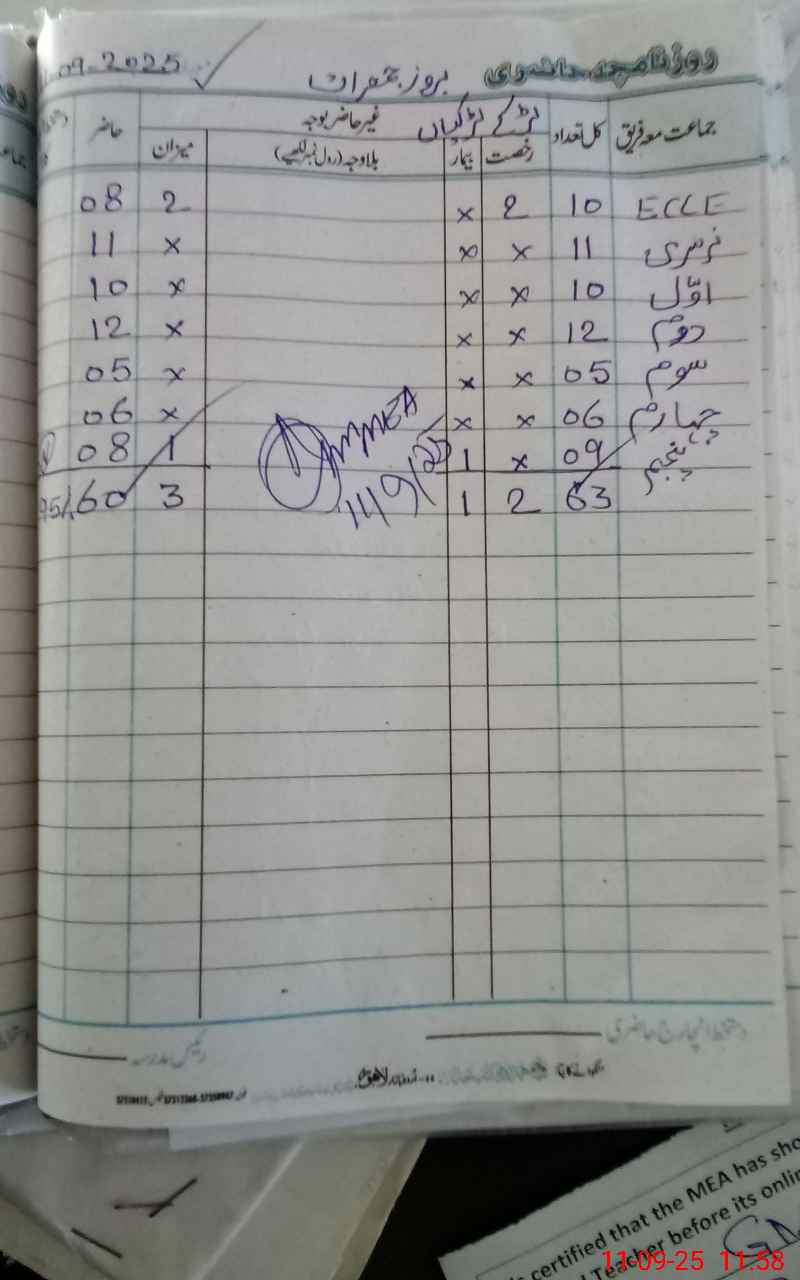 روزنامچہ حاضری بروز جمعرات 11-09-2025
جماعت معہ فریق کل تعداد لڑکے لڑکیاں غیر حاضر بوجہ حاضر
رخصت بیمار بلاوجہ (رول نمبر لکھیے) میزان
ECCE 10 2 x 2 08
نرسری 11 x x x 11
اوّل 10 x x x 10
دوم 12 x x x 12
سوم 05 x x x 05
چہارم 06 x x x 06
پنجم 09 x 1 1 08
63 2 1 3 60 95%
MEA
11/9/25
دستخط انچارج حاضری
رئیس مدرسہ
certified that the MEA has sho
Teacher before its onlin
11-09-25 11:58